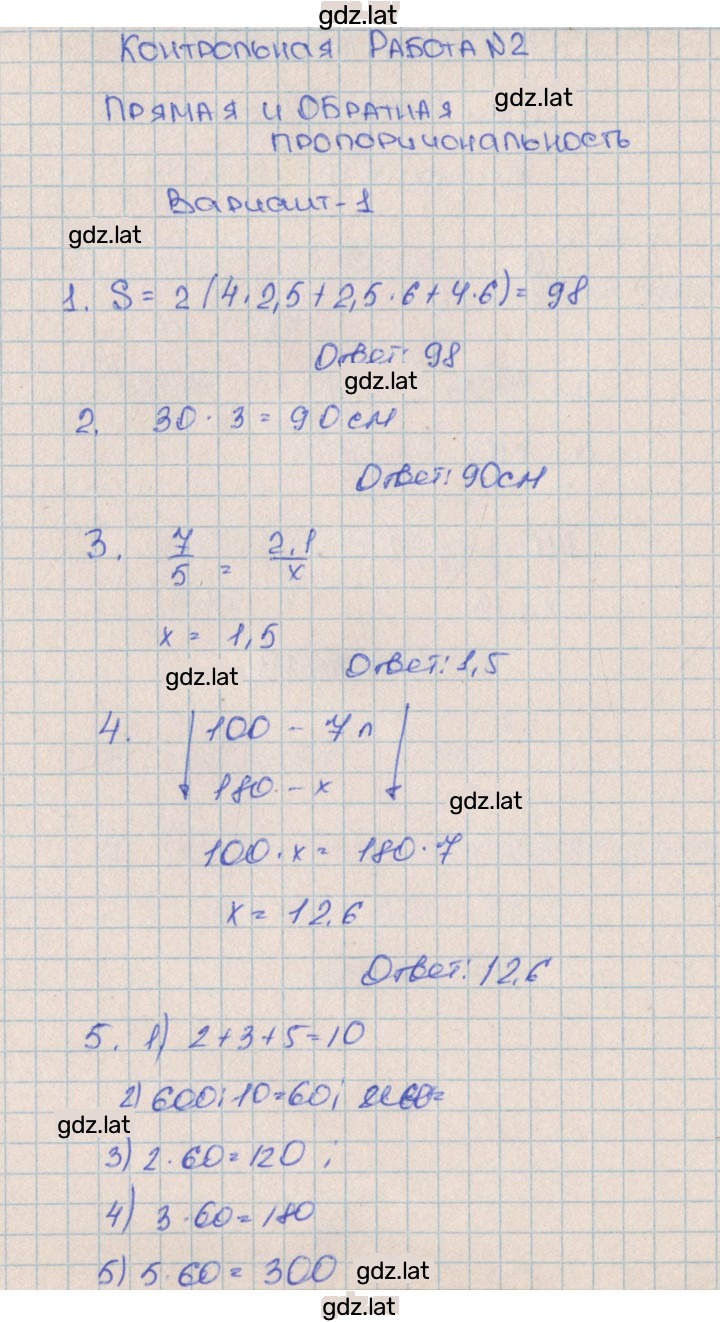 gdz.lat
КОНТРОЛЬНАЯ РАБОТА N2
gdz.lat
ПРЯМАЯ И ОБРАТНАЯ
ПРОПОРЦИОНАЛЬНОСТЬ
Вариант-1
gdz.lat
1. S = 2(4·2,5+2,5·6+4·6)= 98
Ответ: 98
gdz.lat
2. 30·3 = 90см
Ответ: 90см
3. 7/5 = 2,1/x
x = 1,5
gdz.lat
Ответ: 1,5
4. 100 - 7л
180 - x
gdz.lat
100·x = 180·7
x = 12,6
Ответ: 12,6
5. 1) 2+3+5=10
2) 600:10=60;
gdz.lat
3) 2·60=120;
4) 3·60=180
5) 5·60= 300
gdz.lat
gdz.lat